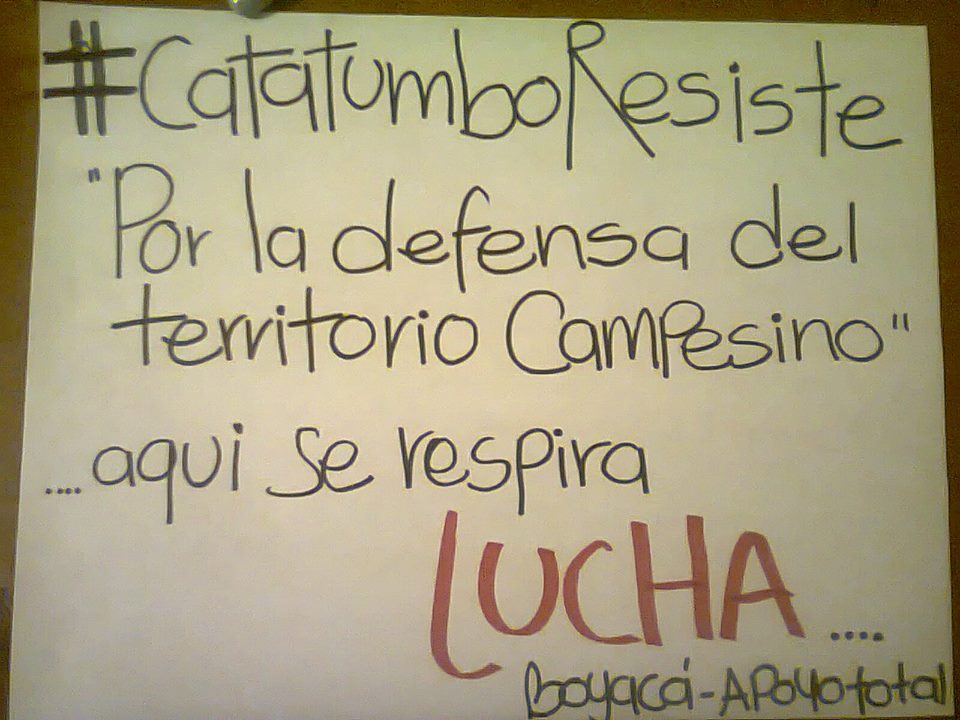 #CatatumboResiste
"Por la defensa del
territorio Campesino"
....aqui se respira
LUCHA....
Boyacá-APoyototal